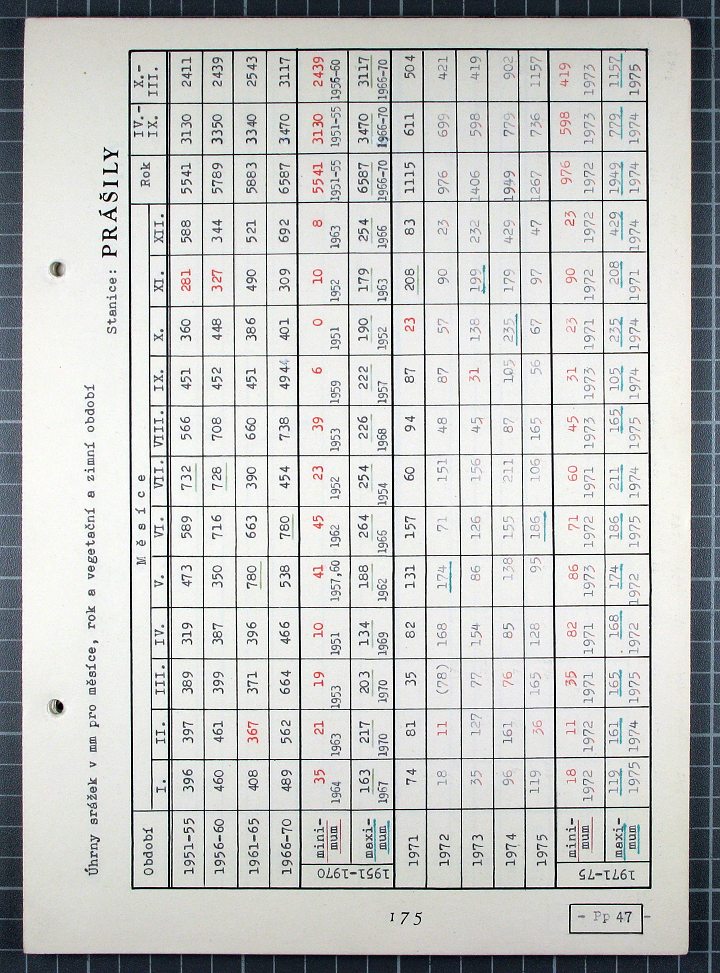 Úhrny srážek v mm pro měsíce, rok a vegetační a zimní období
Stanice: PRÁŠILY
Období Měsíce Rok IV.-IX. X.-III.
I. II. III. IV. V. VI. VII. VIII. IX. X. XI. XII.
1951-55 396 397 389 319 473 589 732 566 451 360 281 588 5541 3130 2411
1956-60 460 461 399 387 350 716 728 708 452 448 327 344 5789 3350 2439
1961-65 408 367 371 396 780 663 390 660 451 386 490 521 5883 3340 2543
1966-70 489 562 664 466 538 780 454 738 494 401 309 692 6587 3470 3117
1951-1970
mini-mum 35 21 19 10 41 45 23 39 6 0 10 8 5541 3130 2439
1964 1963 1953 1951 1957,60 1962 1952 1953 1959 1951 1952 1963 1951-55 1951-55 1956-60
maxi-mum 163 217 203 134 188 264 254 226 222 190 179 254 6587 3470 3117
1967 1970 1970 1969 1962 1966 1954 1968 1957 1952 1963 1966 1966-70 1966-70 1966-70
1971 74 81 35 82 131 157 60 94 87 23 208 83 1115 611 504
1972 18 11 (78) 168 174 71 151 48 87 57 90 23 976 699 421
1973 35 127 77 154 86 126 156 45 31 138 199 232 1406 598 419
1974 96 161 76 85 138 155 211 87 105 235 179 429 1949 779 902
1975 119 36 165 128 95 186 106 165 56 67 97 47 1267 736 1157
1971-75
mini-mum 18 11 35 82 86 71 60 45 31 23 90 23 976 598 419
1972 1972 1971 1971 1973 1972 1971 1973 1973 1971 1972 1972 1972 1973 1973
maxi-mum 119 161 165 168 174 186 211 165 105 235 208 429 1949 779 1157
1975 1974 1975 1972 1972 1975 1974 1975 1974 1974 1971 1974 1974 1974 1975
175
- Pp 47 -